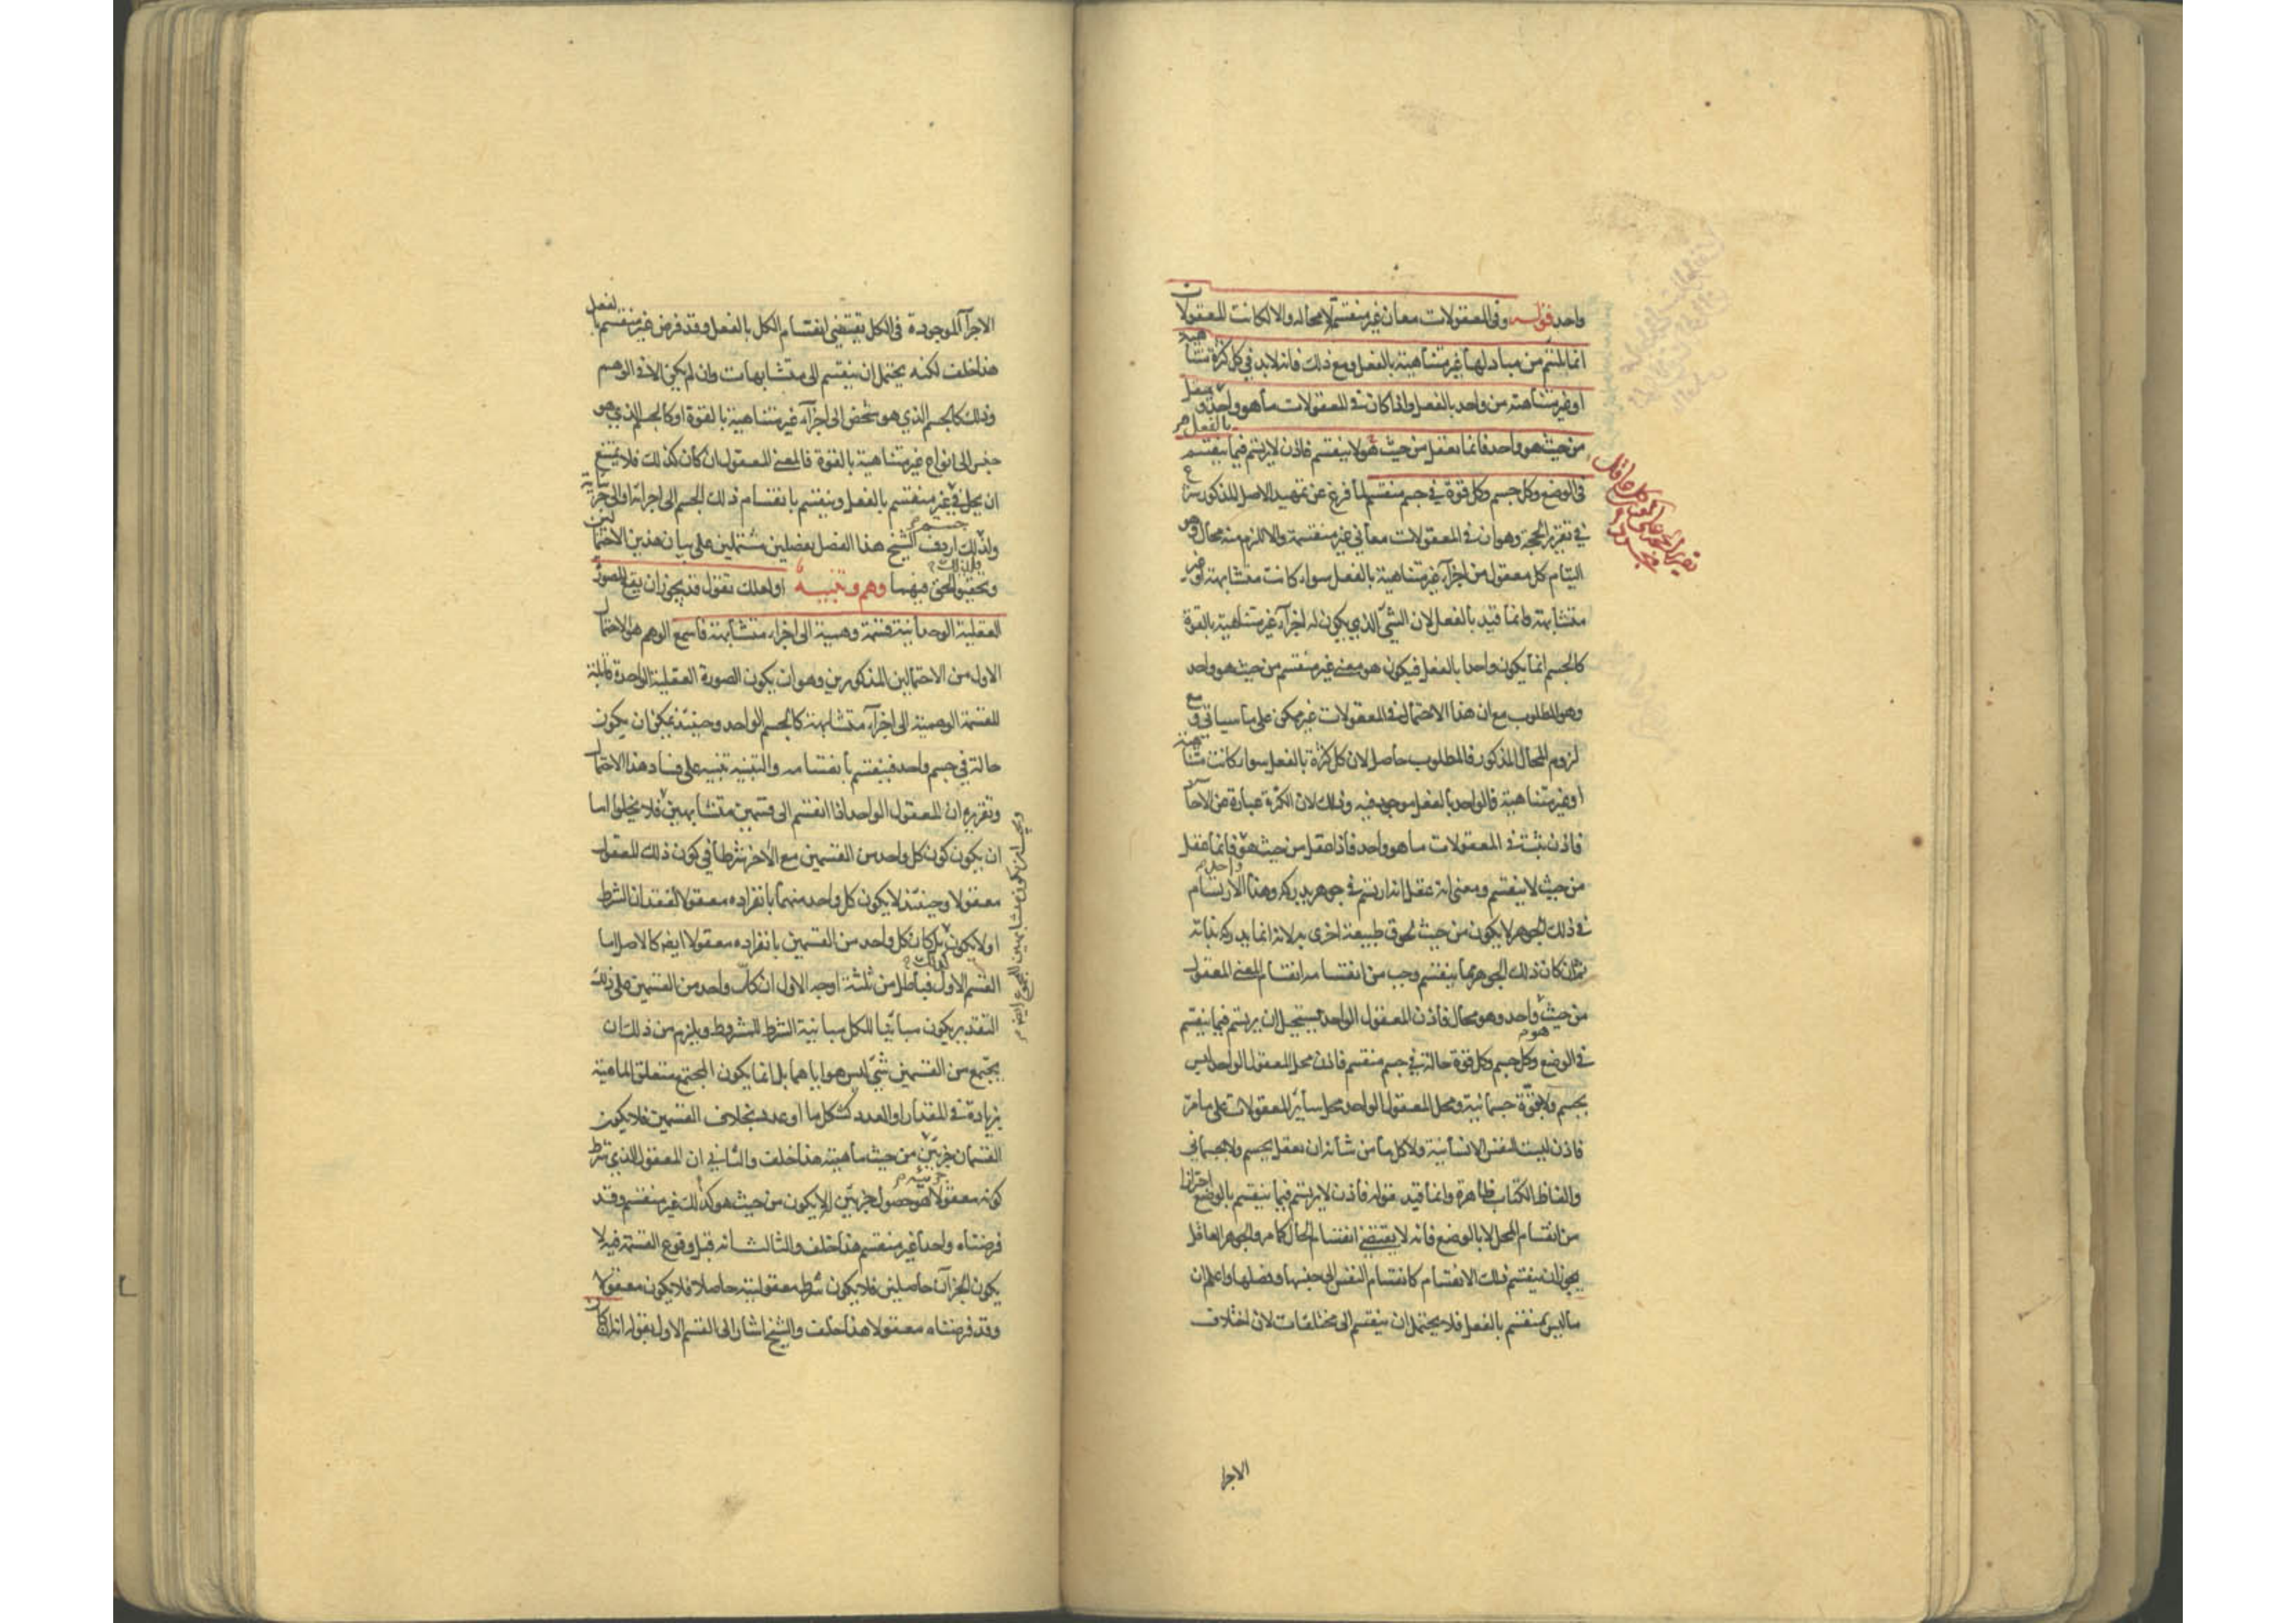 واحد قوله وفى المعقولات معان غير منقسمة لا محالة والا لكانت المعقولات
انما تلتئم من مباد لها غير متناهية بالفعل ومع ذلك فانه لابد فى كل كثرة متناهية
او غير متناهية من واحد بالفعل واذا كان فى المعقولات ما هو واحد ويعقل
من حيث هو واحد فانما يعقل من حيث هو لا ينقسم فاذن لا يرتسم فيما ينقسم
فى الوضع وكل جسم وكل قوة فى جسم منقسم لما فرغ عن تمهيد الاصل المذكور شرع
فى تقرير الحجة وهو ان فى المعقولات معانى غير منقسمة والا للزم منه محال وهو
التيام كل معقول من اجزاء غير متناهية بالفعل سواء كانت متشابهة او غير
متشابهة وانما قيد بالفعل لان الشئ الذى يكون له اجزاء غير متناهية بالقوة
كالجسم انما يكون واحدا بالفعل فيكون هو معنى غير منقسم من حيث هو واحد
وهو المطلوب مع ان هذا الاحتمال فى المعقولات غير ممكن على ما سياتى ومع
لزوم المحال المذكور فالمطلوب حاصل لان كل كثرة بالفعل سواء كانت متناهية
او غير متناهية فالواحد بالفعل موجود فيه وذلك لان الكثرة عبارة عن الآحاد
فاذن ثبت فى المعقولات ما هو واحد فاذا عقل من حيث هو واحد فانما عقل
من حيث لا ينقسم ومعنى انه عقل انه ارتسم فى جوهر يدركه وهذا الارتسام
فى ذلك الجوهر لا يكون من حيث لحوق طبيعة اخرى به لانه انما يدركه بذاته
ثم ان كان ذلك الجوهر مما ينقسم وجب من انقسامه انقسام المعنى المعقول
من حيث هو واحد وهو محال فاذن المعقول الواحد يستحيل ان يرتسم فيما ينقسم
فى الوضع وكل جسم وكل قوة حالة فى جسم منقسم فاذن محل المعقول الواحد ليس
بجسم ولا قوة جسمانية ومحل المعقول الواحد محل سائر المعقولات على ما مر
فاذن ليست النفس الانسانية ولا كل ما من شانه ان يعقل بجسم ولا بجسمانى
والفاظ الكتاب ظاهرة وانما قيد قوله فاذن لا يرتسم فيما ينقسم بالوضع احترازا
من انقسام المحل لا بالوضع فانه لا يقتضى انقسام الحال كما مر والجوهر العاقل
يجوز ان ينقسم ذلك الانقسام كانقسام النفس الى جنسها وفصلها واعلم ان
ما ليس بمنقسم بالفعل فلا يحتمل ان ينقسم الى مختلفات لان اختلاف
الاجزا
الاجزاء الموجودة فى الكل يقتضى انقسام الكل بالفعل وقد فرض غير منقسم بالفعل
هذا خلف لكنه يحتمل ان ينقسم الى متشابهات وان لم يكن الا فى الوهم
وذلك كالجسم الذى هو شخص الى اجزاء غير متناهية بالقوة او كالجسم الذى هو
جنس الى انواع غير متناهية بالقوة فالمعنى المعقول ان كان كذلك فلا يمتنع
ان يحل فى جسم غير منقسم بالفعل وينقسم بانقسام ذلك الجسم الى اجزائه او الى جزئياته
ولذلك اردف الشيخ هذا الفصل بفصلين مشتملين على بيان هذين الاحتمالين
وتحقيق الحق فيهما وهم وتنبيه او لعلك تقول قد يجوز ان يقع للصورة
العقلية الوحدانية قسمة وهمية الى اجزاء متشابهة فاسمع الوهم هو الاحتمال
الاول من الاحتمالين المذكورين وهو ان يكون الصورة العقلية الواحدة قابلة
للقسمة الوهمية الى اجزاء متشابهة كالجسم الواحد وحينئذ يمكن ان يكون
حالة فى جسم واحد فينقسم بانقسامه والتنبيه تنبيه على فساد هذا الاحتمال
وتقريره ان المعقول الواحد اذا انقسم الى قسمين متشابهين فلا يخلوا اما
ان يكون كون كل واحد من القسمين مع الآخر شرطا فى كون ذلك المعقول
معقولا وحينئذ لا يكون كل واحد منهما بانفراده معقولا لفقدان الشرط
او لا يكون كذلك بل كان كل واحد من القسمين بانفراده معقولا ايضا كالاصل اما
القسم الاول فباطل من ثلثة اوجه الاول ان كل واحد من القسمين على ذلك
التقدير يكون مباينا للكل مباينة الشرط للمشروط ويلزم من ذلك ان
يجتمع من القسمين شئ ليس هو اياهما بل انما يكون المجتمع متعلق الماهية
بزيادة فى المقدار او العدد كشكل ما او عدد بخلاف القسمين فلا يكون
القسمان جزئين من حيث ماهيته هذا خلف والثانى ان المعقول الذى شرط
كونه معقولا هو حصول جزئين له لا يكون من حيث هو كذلك غير منقسم وقد
فرضناه واحدا غير منقسم هذا خلف والثالث انه قبل وقوع القسمة فيه لا
يكون الجزآن حاصلين فلا يكون شرط معقوليته حاصلا فلا يكون معقولا
وقد فرضناه معقولا هذا خلف والشيخ اشار الى القسم الاول بقوله انه ان كان